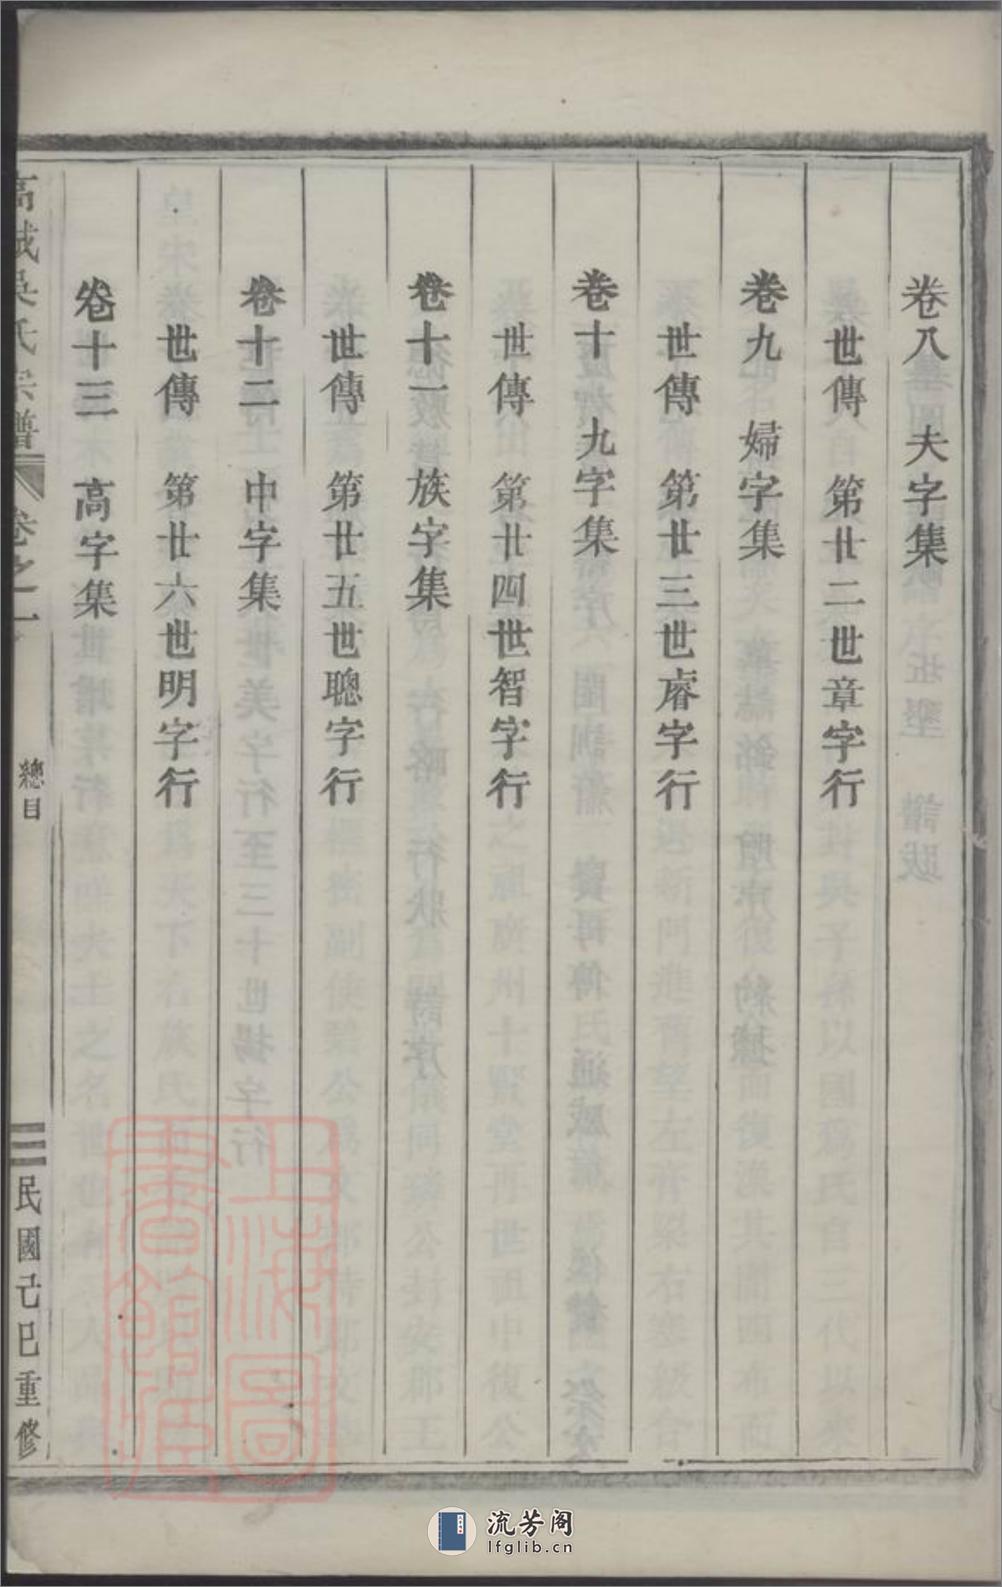 卷八　夫字集
世傳　第廿二世章字行
卷九　婦字集
世傳　第廿三世睿字行
卷十　九字集
世傳　第廿四世智字行
卷十一　族字集
世傳　第廿五世聰字行
卷十二　中字集
世傳　第廿六世明字行
卷十三　高字集
高城吳氏宗譜　卷之一　總目　民國己巳重修
上海圖書館藏
流芳阁
lfglib.cn